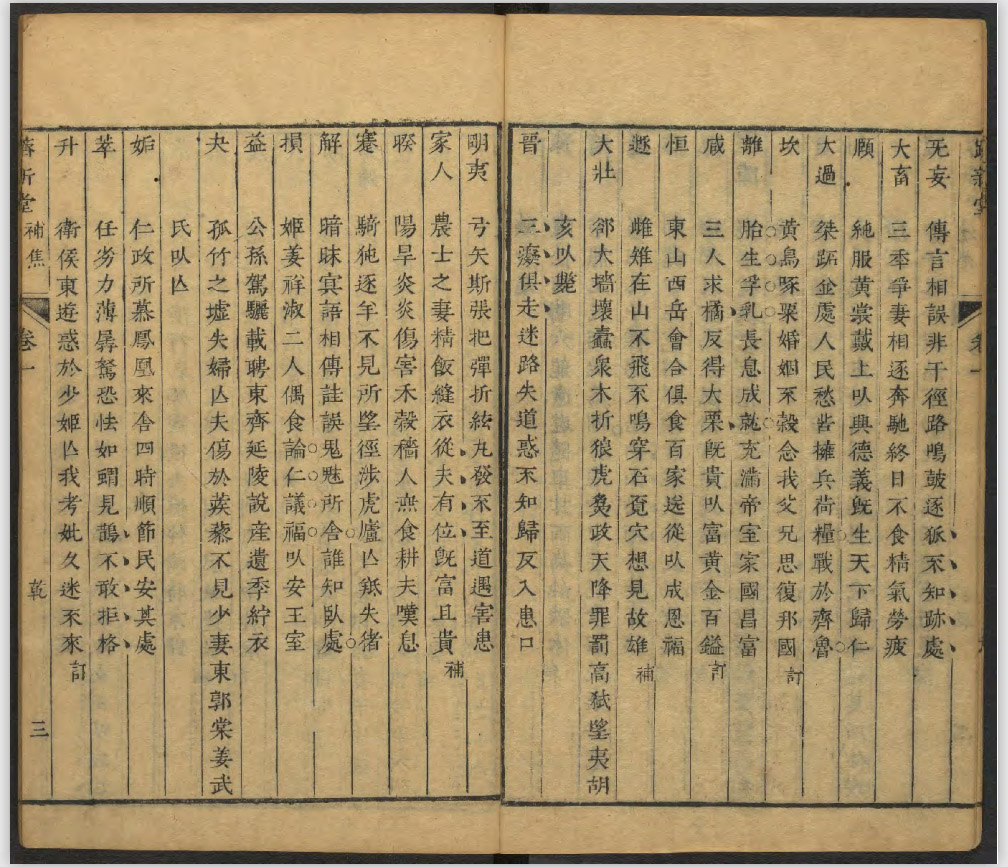 无妄 傳言相誤非干徑路鳴鼓逐狐不知跡處
大畜 三季爭妻相逐奔馳終日不食精氣勞疲
頤 純服黄裳戴上㠯興德義既生天下歸仁
大過 桀跖並處人民愁苦擁兵荷糧戰於齊魯
坎 黄鳥啄粟婚姻不榖念我父兄思復邦國 訂
離 胎生孚乳長息成就充滿帝室家國昌富
咸 三人求橘反得大栗既貴㠯富黄金百鎰 訂
恒 東山西岳會合俱食百家送從㠯成恩福
遯 雌雉在山不飛不鳴穿石覓穴想見故雄 補
大壯 郤大墻壞蠹衆木折狼虎爲政天降罪罰高弑望夷胡
亥㠯斃
晉 三癡俱走迷路失道惑不知歸反入患口
明夷 弓矢斯張把彈折絃丸發不至道遇害患
家人 農士之妻精飯縫衣從夫有位既富且貴 補
睽 陽旱炎炎傷害禾穀穡人無食耕夫嘆息
蹇 騎㹠逐羊不見所望徑涉虎廬亾羝失猪
解 暗昧冥語相傳詿誤鬼魅所舍誰知臥處
損 姬姜祥淑二人偶食論仁議福㠯安王室
益 公孫駕驪載聘東齊延陵說産遺季紵衣
夬 孤竹之墟失婦亾夫傷於蒺藜不見少妻東郭棠姜武
氏㠯亾
姤 仁政所慕鳳凰來舍四時順節民安其處
萃 任劣力薄孱駑恐怯如蝟見鵲不敢拒格
升 衛侯東遊惑於少姬亾我考妣久迷不來 訂
補焦 卷一 乾 三